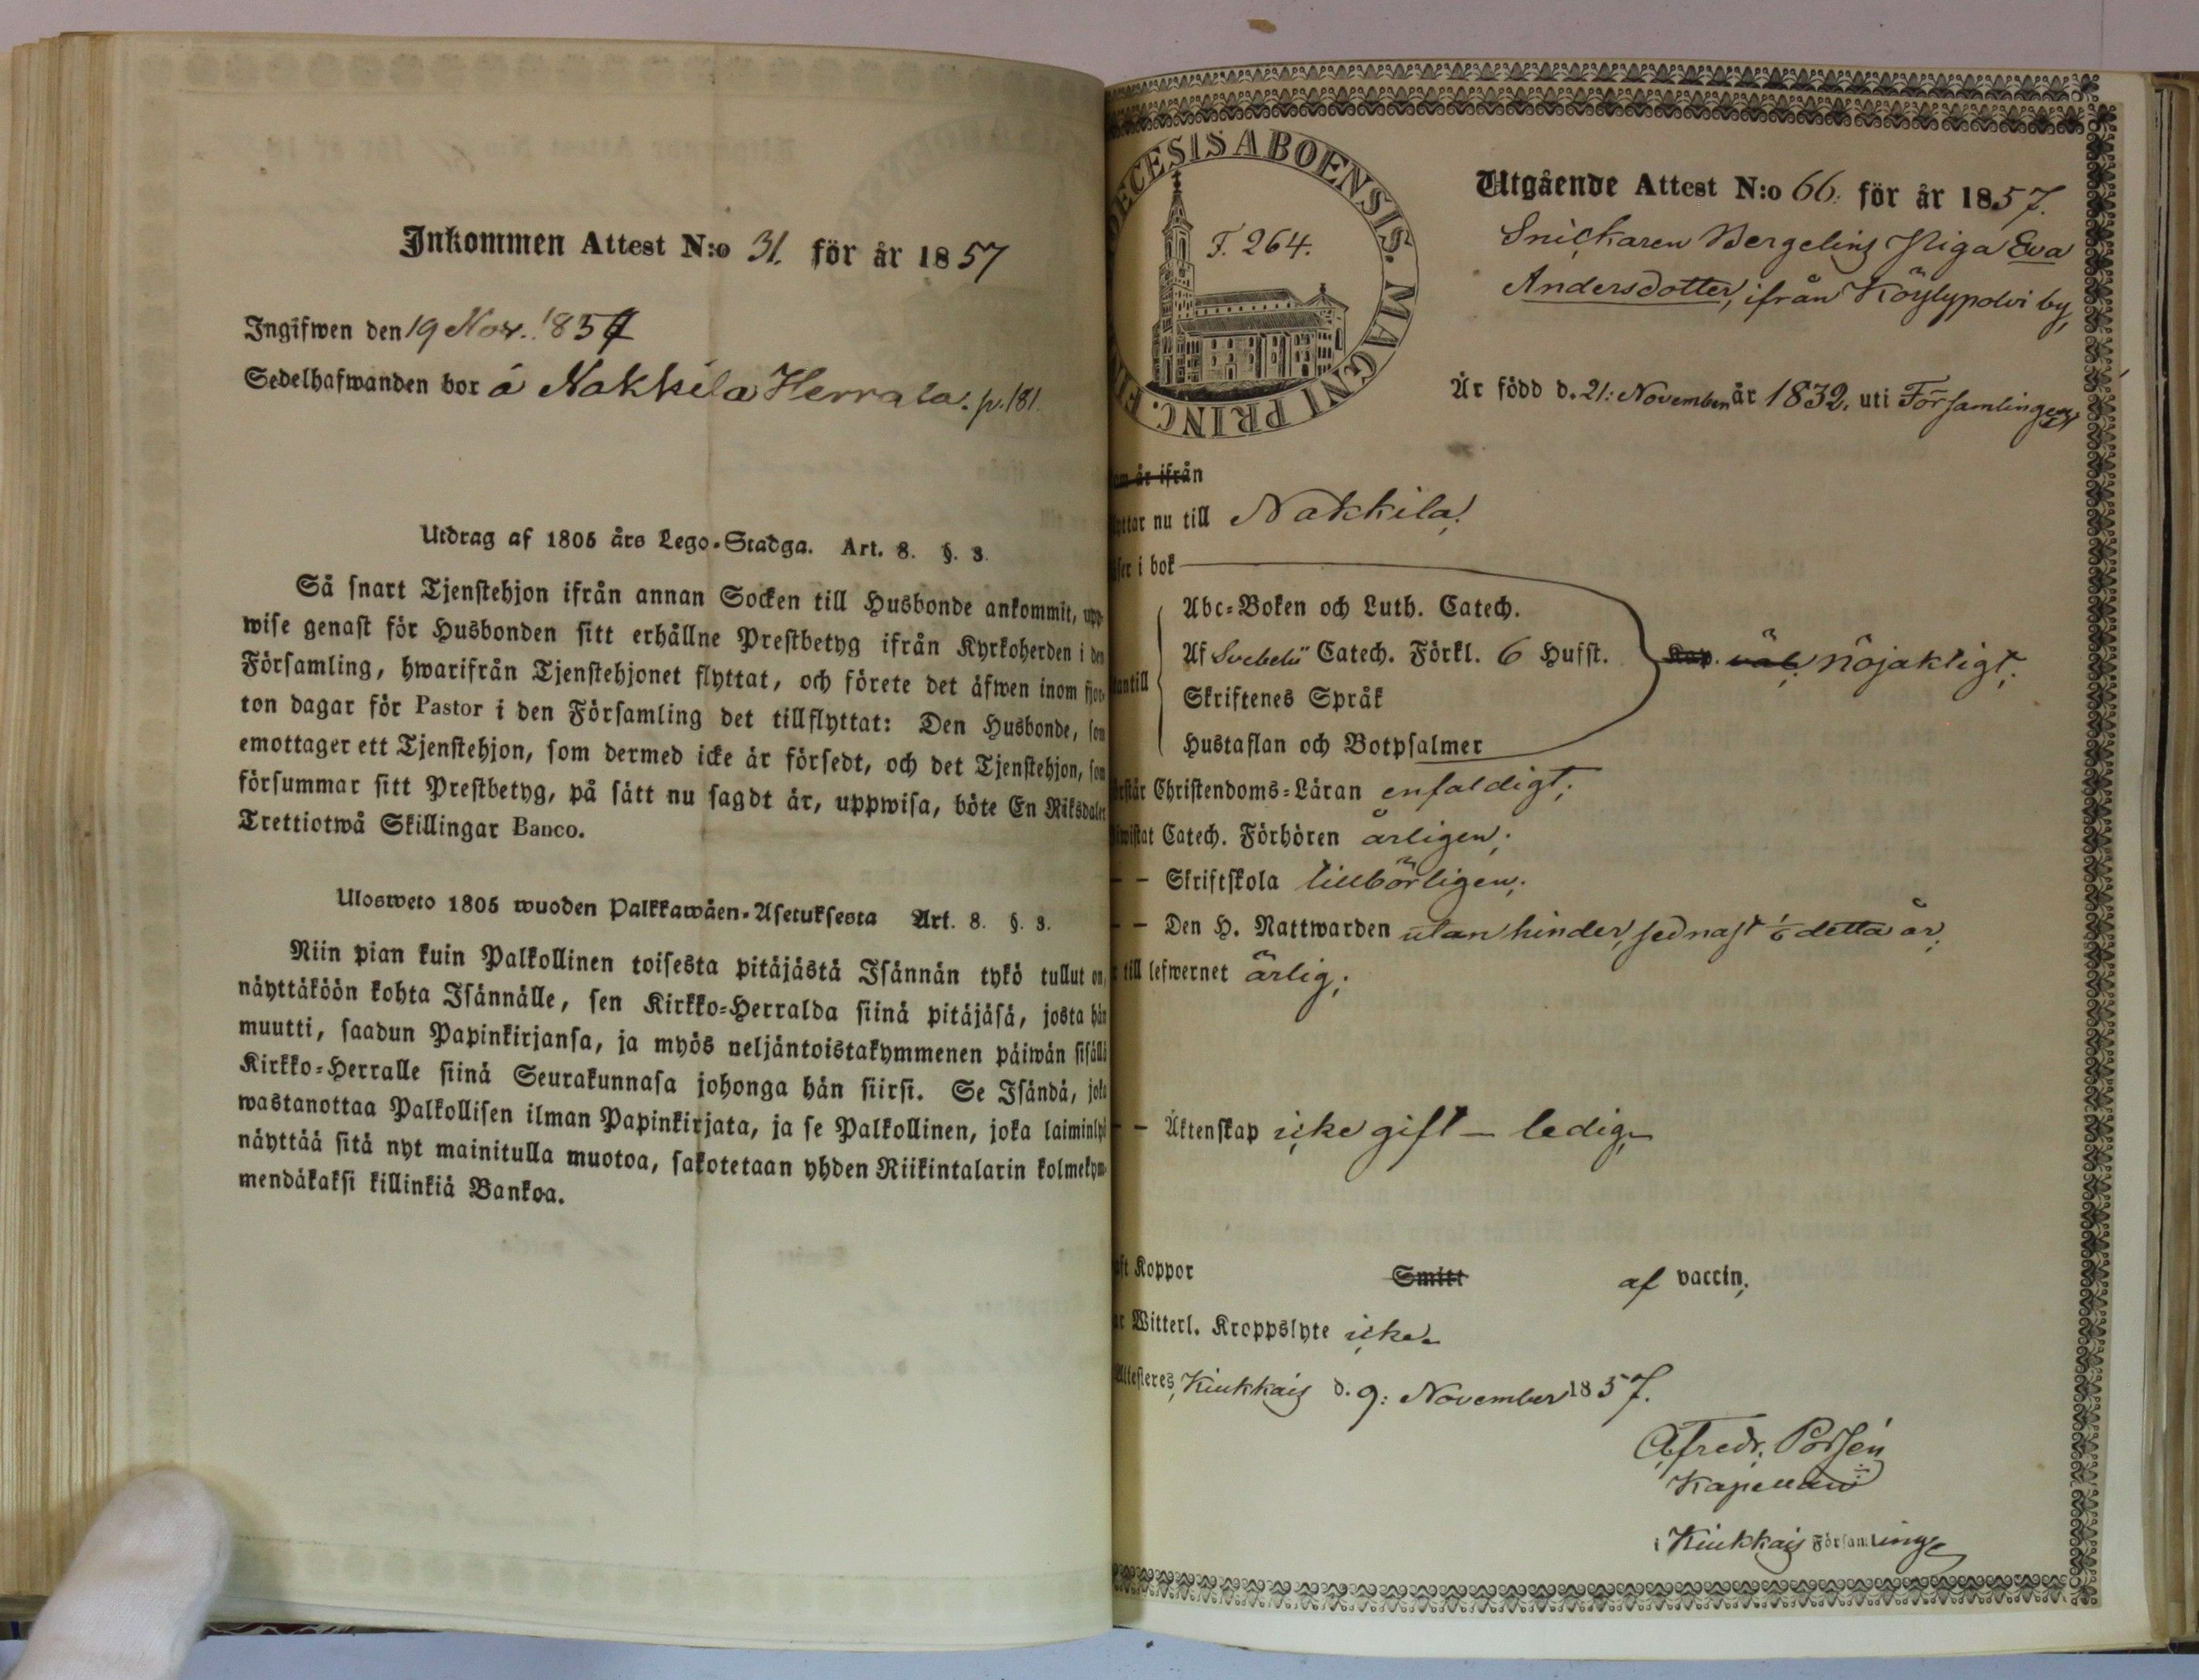 Inkommen Attest N:o 31. för år 1857
Ingifwen den 19 Nov. 1857
Sedelhafwanden bor å Nakkila Herrala. p. 181.
Utdrag af 1805 års Lego-Stadga. Art. 8. §. 3.
Så snart Tjenstehjon ifrån annan Socken till Husbonde ankommit, upp-
wise genast för Husbonden sitt erhållne Prestbetyg ifrån Kyrkoherden i den
Församling, hwarifrån Tjenstehjonet flyttat, och förete det äfwen inom fjor-
ton dagar för Pastor i den Församling det tillflyttat: Den Husbonde, som
emottager ett Tjenstehjon, som dermed icke är försedt, och det Tjenstehjon, som
försummar sitt Prestbetyg, på sätt nu sagdt är, uppwisa, böte En Riksdaler
Trettiotwå Skillingar Banco.
Ulosweto 1805 wuoden Palkkawäen-Asetuksesta Art. 8. §. 3.
Niin pian kuin Palkollinen toisesta pitäjästä Isännän tykö tullut on,
näyttäköön kohta Isännälle, sen Kirkko-Herralda siinä pitäjäsä, josta hän
muutti, saadun Papinkirjansa, ja myös neljäntoistakymmenen päiwän sisällä
Kirkko-Herralle siinä Seurakunnasa johonga hän siirsi. Se Isändä, joka
wastanottaa Palkollisen ilman Papinkirjata, ja se Palkollinen, joka laiminlyö
näyttää sitä nyt mainitulla muotoa, sakotetaan yhden Riikintalarin kolmekym-
mendäkaksi killinkiä Bankoa.
DECESIS ABOENSIS. MAGNI PRINC. FIN
F. 264.
Utgående Attest N:o 66. för år 1857.
Snickaren Bergelins Piga Eva
Andersdotter, ifrån Köylypolvi by,
Är född d. 21: November år 1832, uti Församlingen,
om är ifrån
yttar nu till Nakkila;
äser i bok
Abc-Boken och Luth. Catech.
Af Svebelii Catech. Förkl. 6 Hufst. Kap. väl; nöjaktigt;
antill
Skriftenes Språk
Hustaflan och Botpsalmer
rstår Christendoms-Läran enfaldigt;
iwistat Catech. Förhören årligen;
– – Skriftskola tillbörligen;
– – Den H. Nattwarden utan hinder, sednast 1/6 detta år;
till lefwernet ärlig;
– – Äktenskap icke gift – ledig,
ft Koppor Smitt af vaccin;
r Witterl. Kroppslyte icke.
Attesteres, Kiukkais d. 9: November 1857.
Kapellan
i Kiukkais Församling